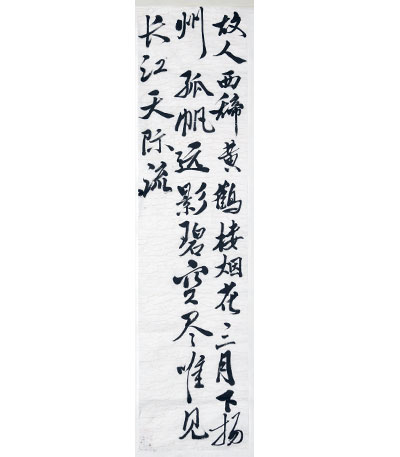 故人西辭黄鶴楼烟花三月下揚
州孤帆远影碧空尽唯见
长江天际流